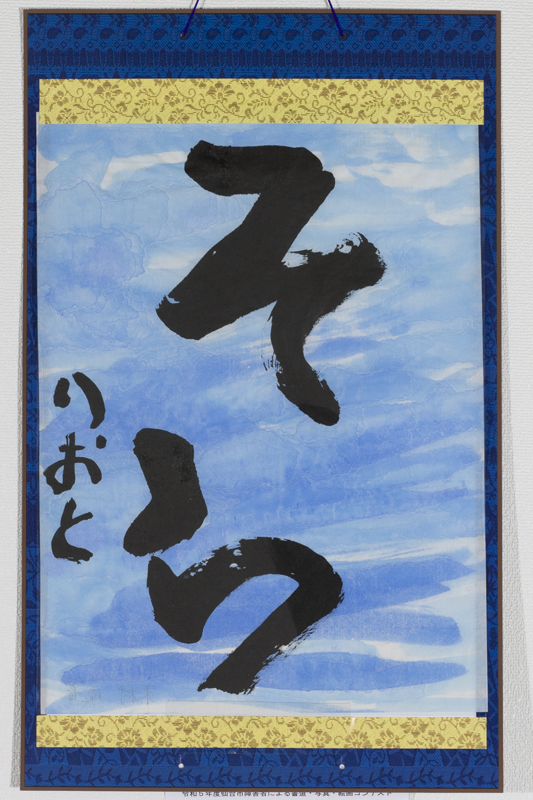 そら
りおと
令和5年度仙台市障害者による書道・写真・絵画コンテスト